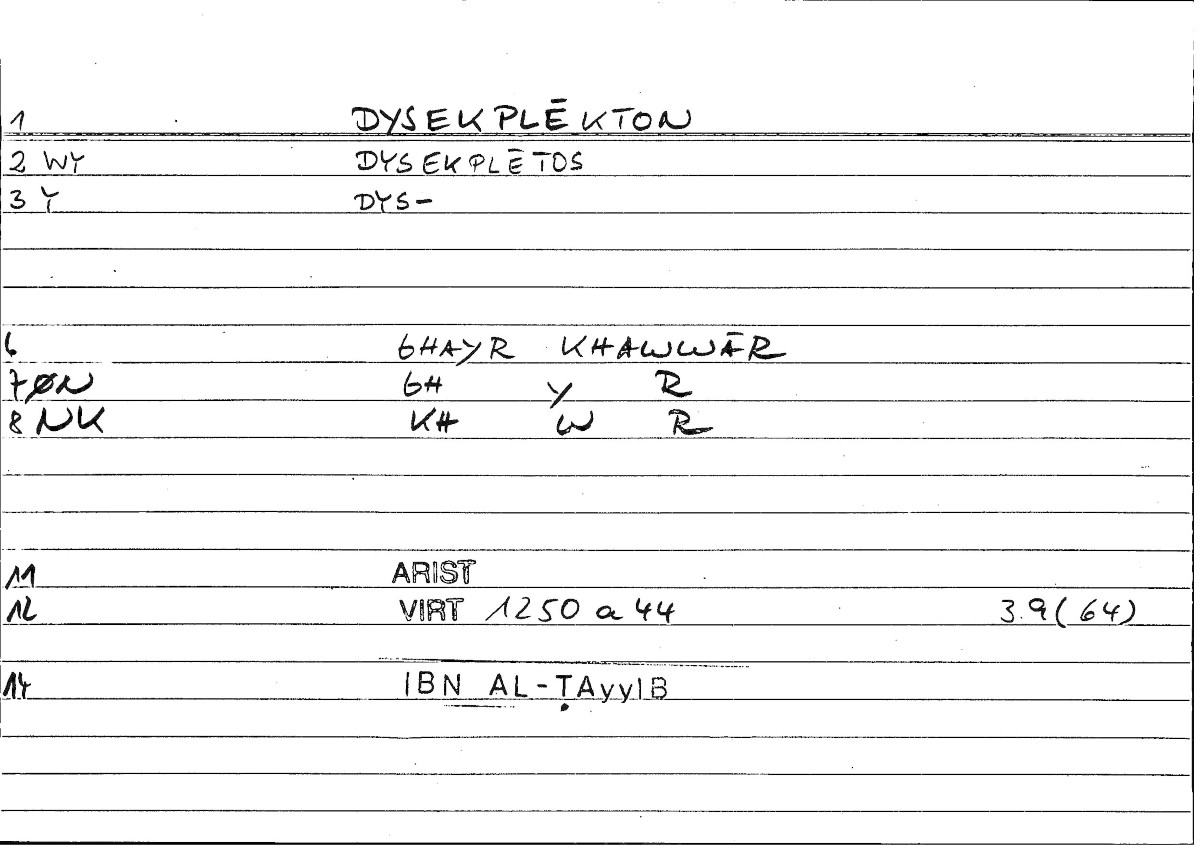 1 DYSEKPLĒKTON
2 WY DYSEKPLĒTOS
3 Y DYS-
6 GHAYR KHAWWĀR
7 ØN GH Y R
8 NK KH W R
11 ARIST
12 VIRT 1250 a 44 3.9(64)
14 IBN AL-ṬAyyIB